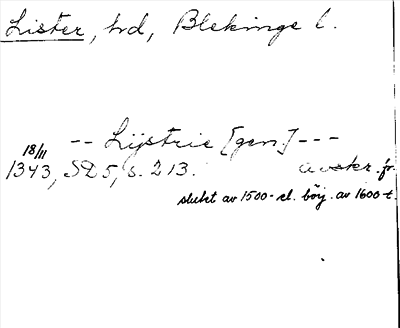 Lister, hd, Blekinge l.
-- Lijstrie [gen.] ---
18/11
1343, SD 5, s. 213. avskr. fr.
slutet av 1500- el. börj. av 1600-t.